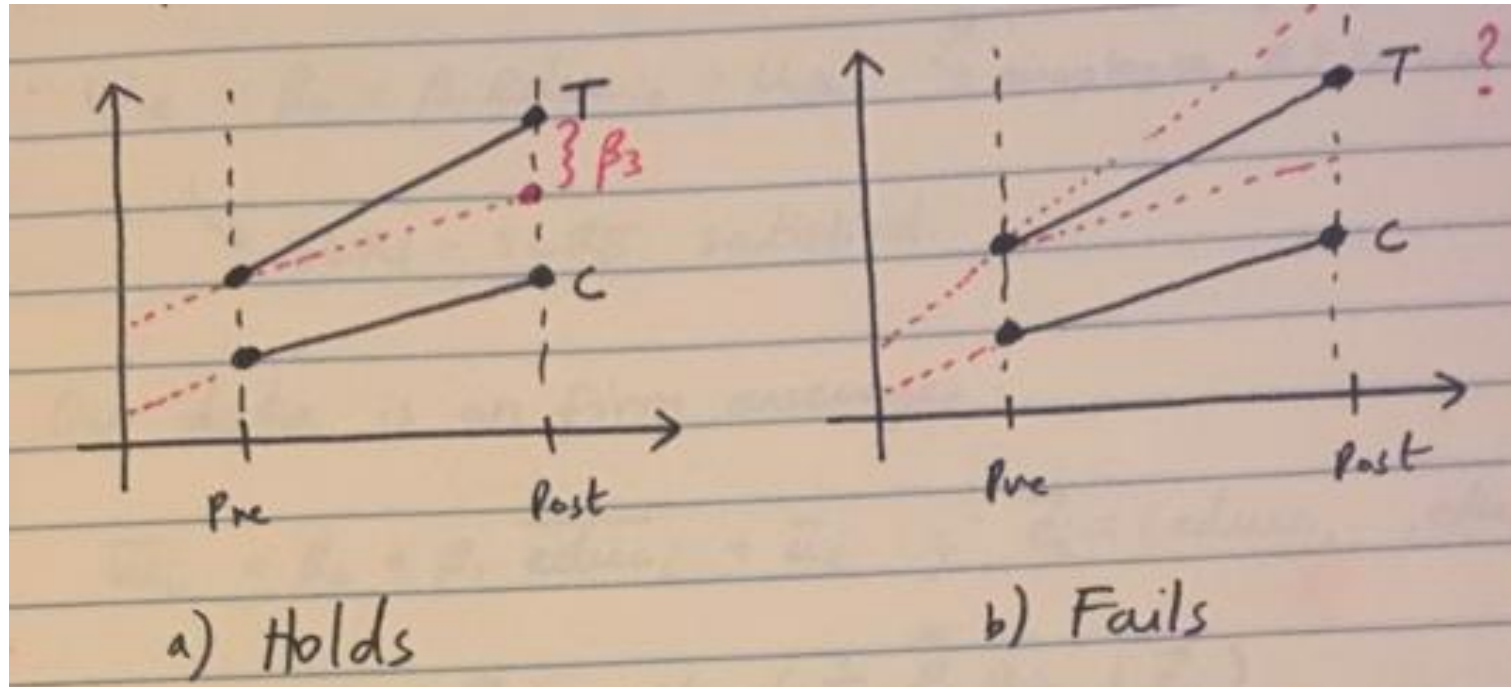 T
} β3
C
Pre
Post
a) Holds
?
T
C
Pre
Post
b) Fails